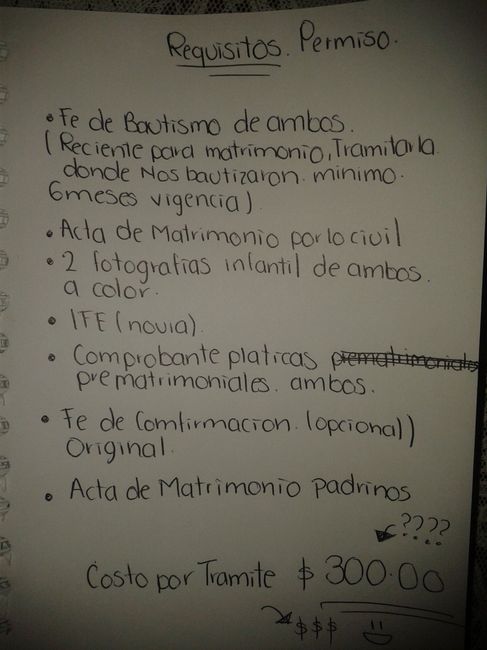 Requisitos. Permiso.
• Fe de Bautismo de ambos.
(Reciente para matrimonio, Tramitarla
donde Nos bautizaron. minimo.
6meses vigencia).
• Acta de Matrimonio por lo civil
• 2 fotografias infantil de ambos.
a color.
• IFE (novia).
• Comprobante platicas prematrimoniales
prematrimoniales. ambos.
• Fe de Comfirmacion. (opcional)
Original.
• Acta de Matrimonio padrinos
????
Costo por Tramite $300.00
$$$